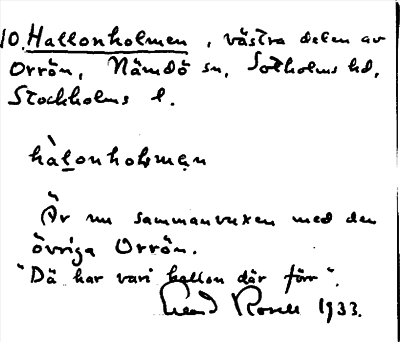 10. Hallonholmen, västra delen av
Orrön, Nämdö sn, Sotholms hd,
Stockholms l.
hàl̲onholmạn
Är nu sammanvuxen med den
övriga Orrön.
"Dä har vari hallon där förr".
1933.